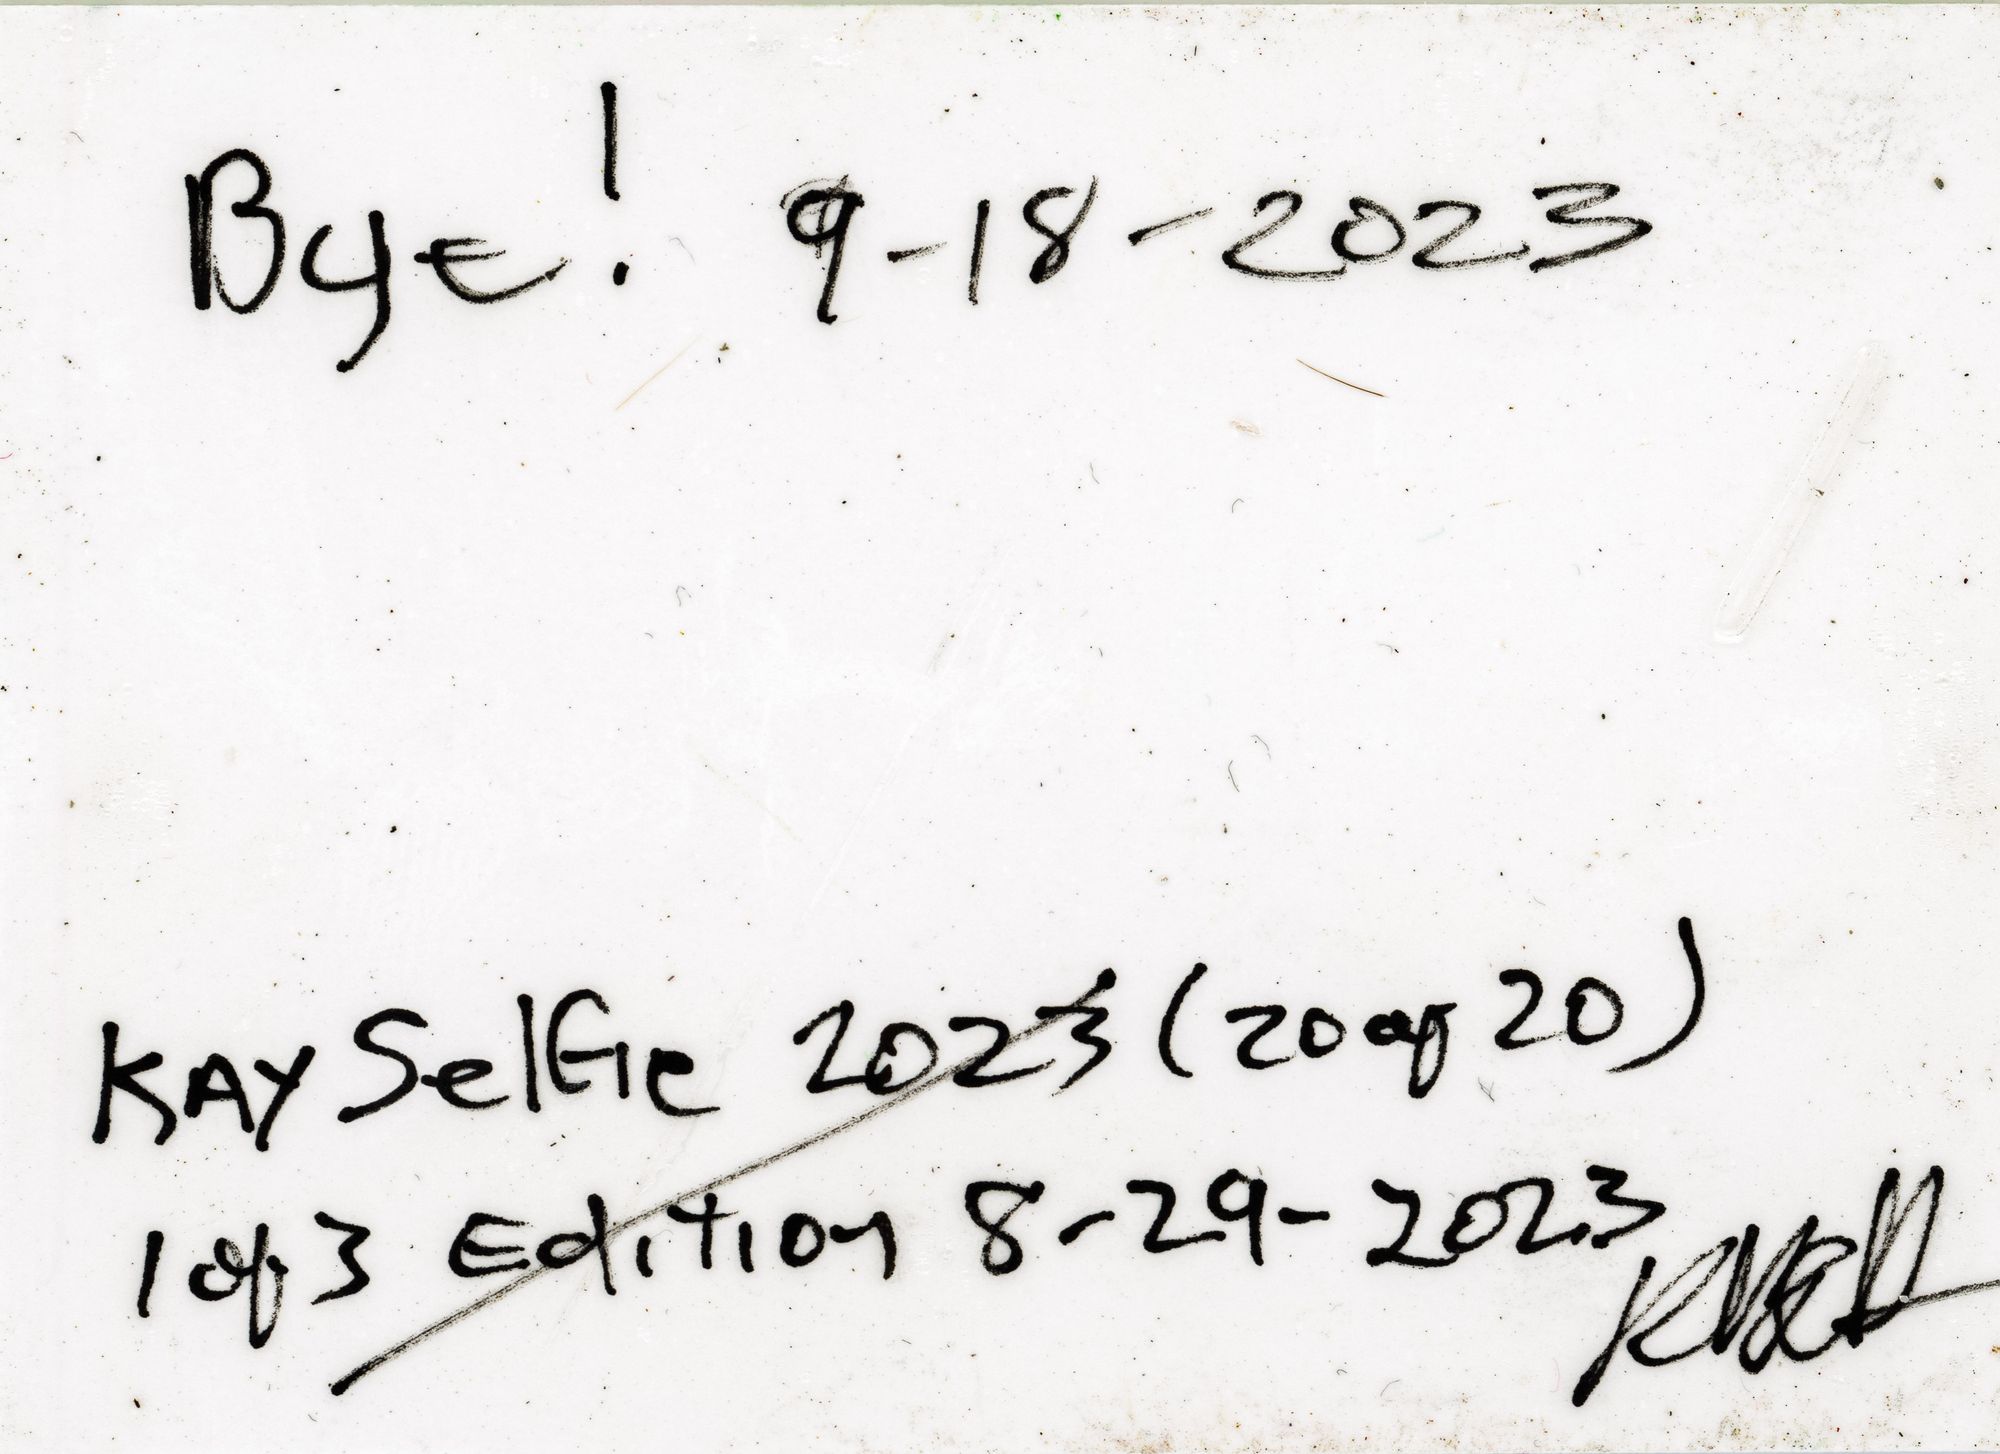 Bye! 9-18-2023
KAY Selfie 2023 (20 of 20)
1 of 3 Edition 8-29-2023